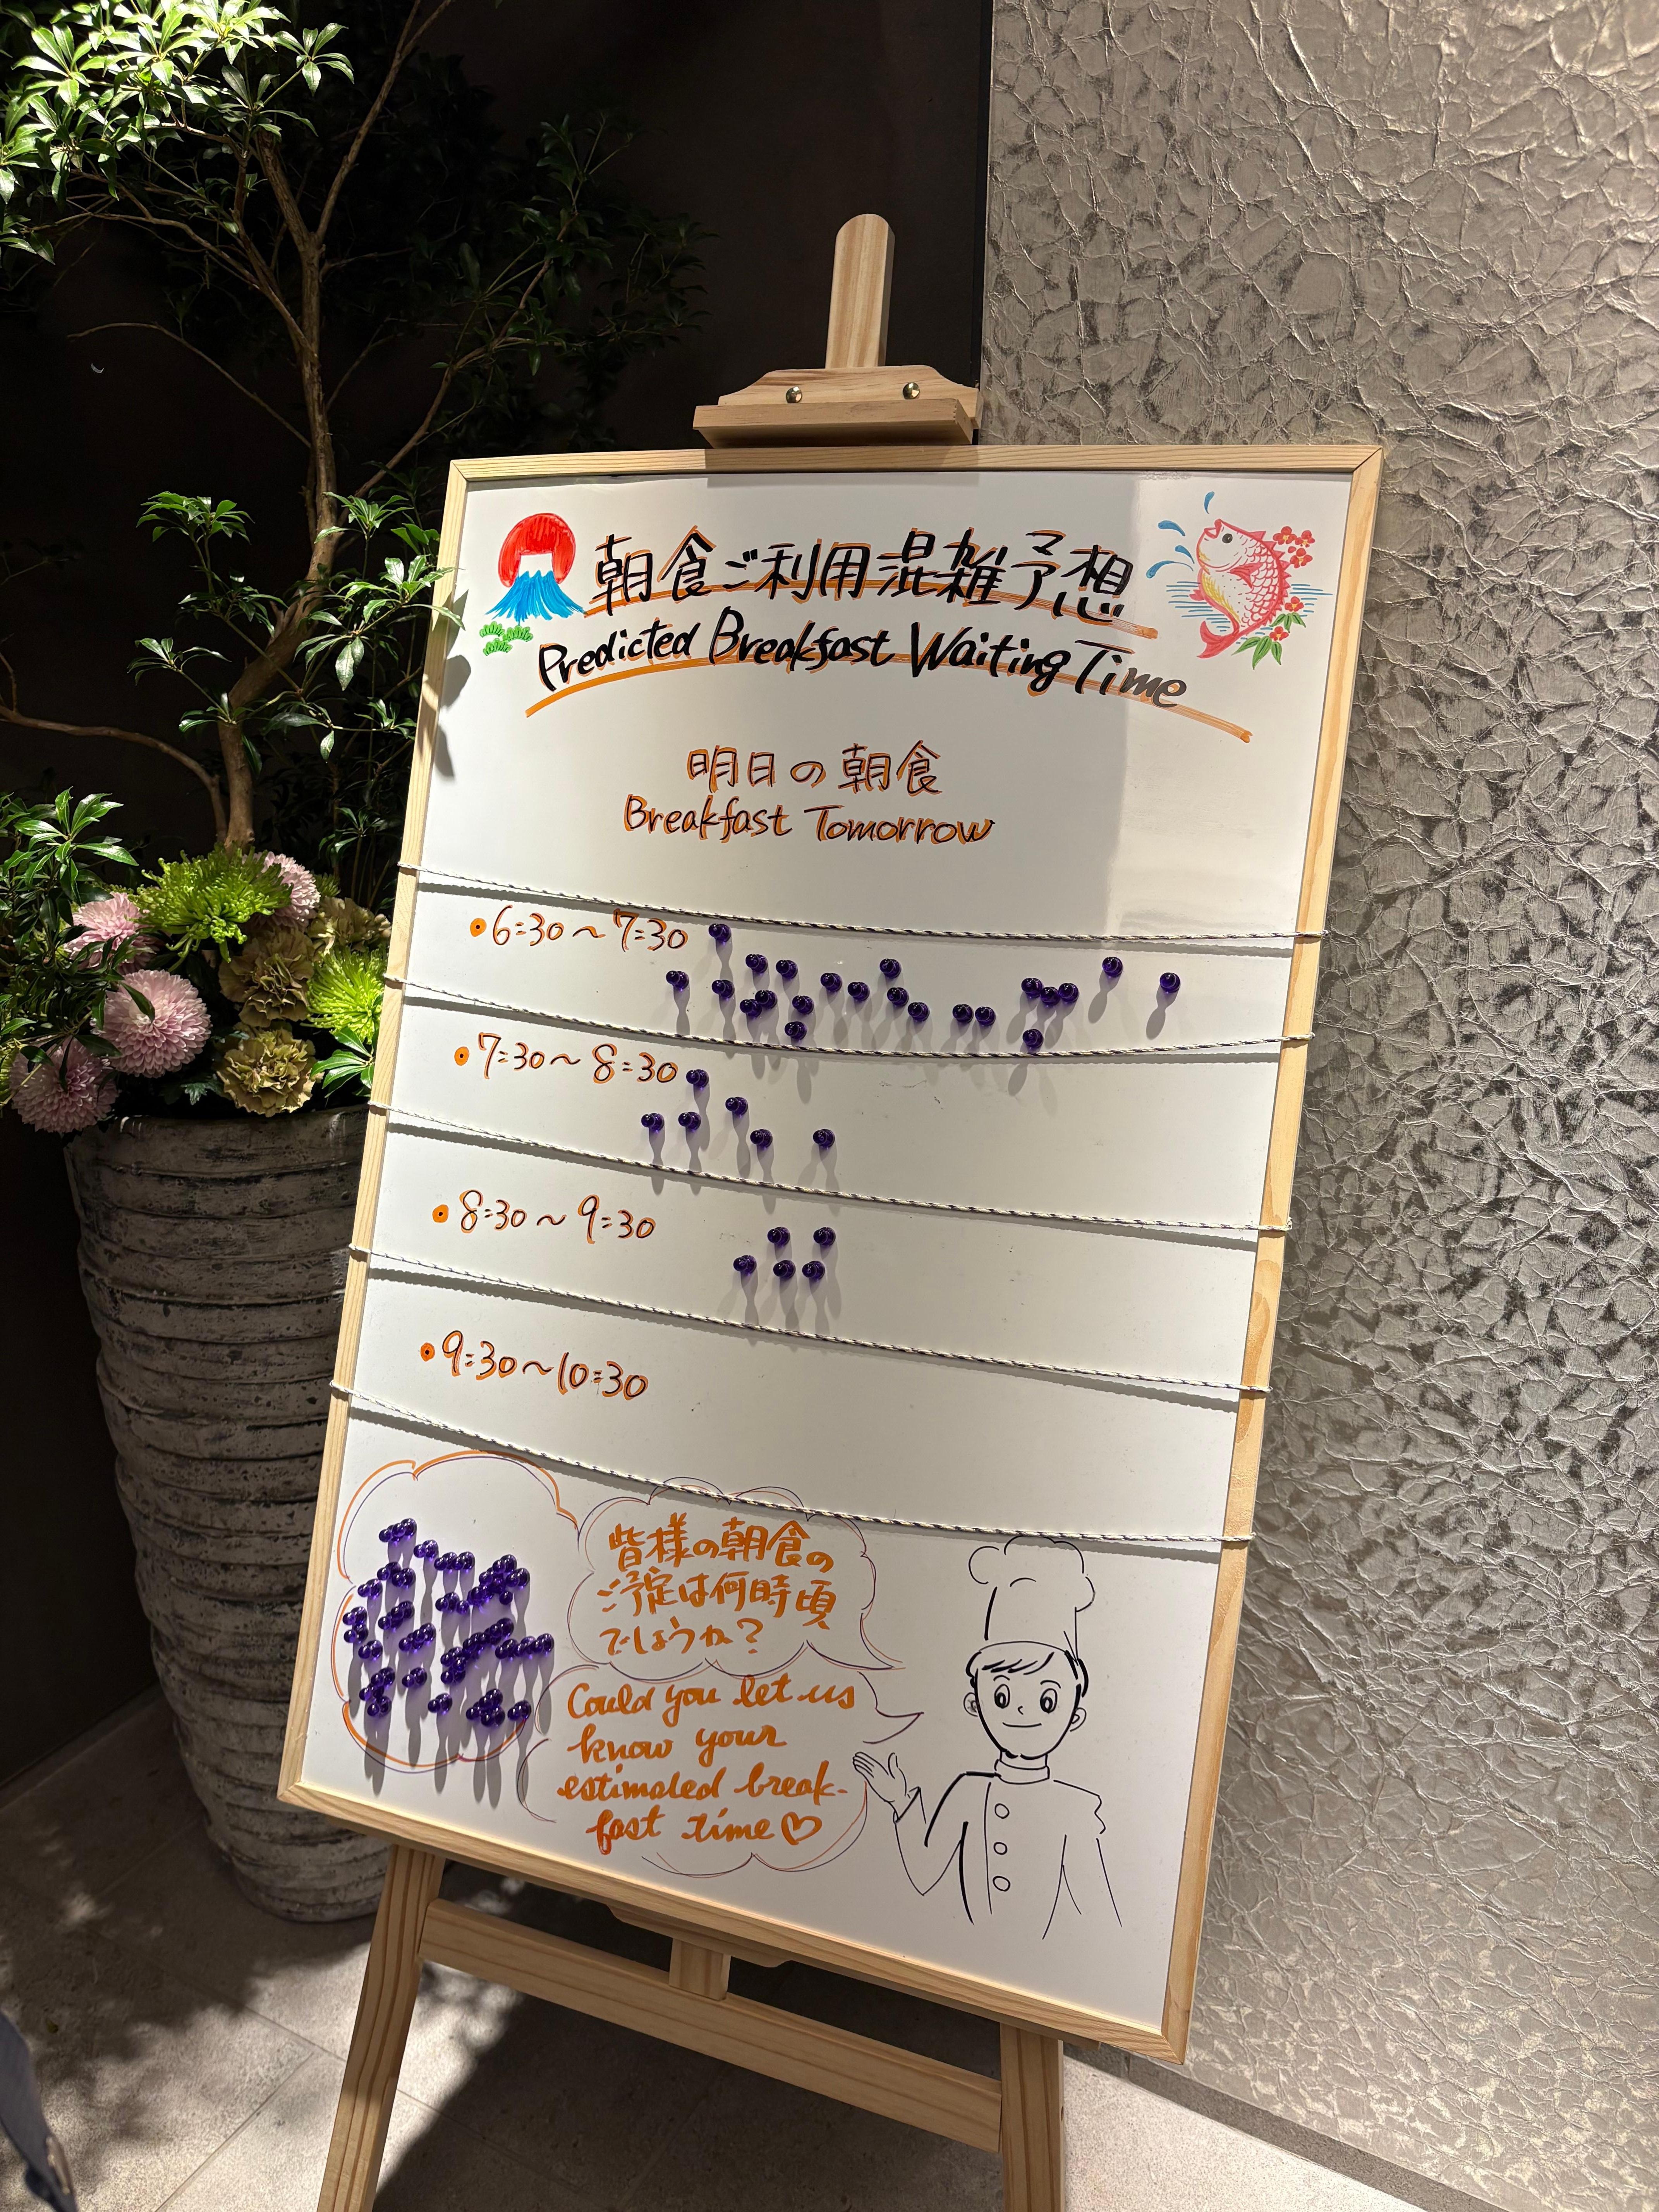 朝食ご利用混雑予想
Predicted Breakfast Waiting Time
明日の朝食
Breakfast Tomorrow
6:30～7:30
7:30～8:30
8:30～9:30
9:30～10:30
皆様の朝食の
ご予定は何時頃
でしょうか？
Could you let us
know your
estimated break-
fast time♡